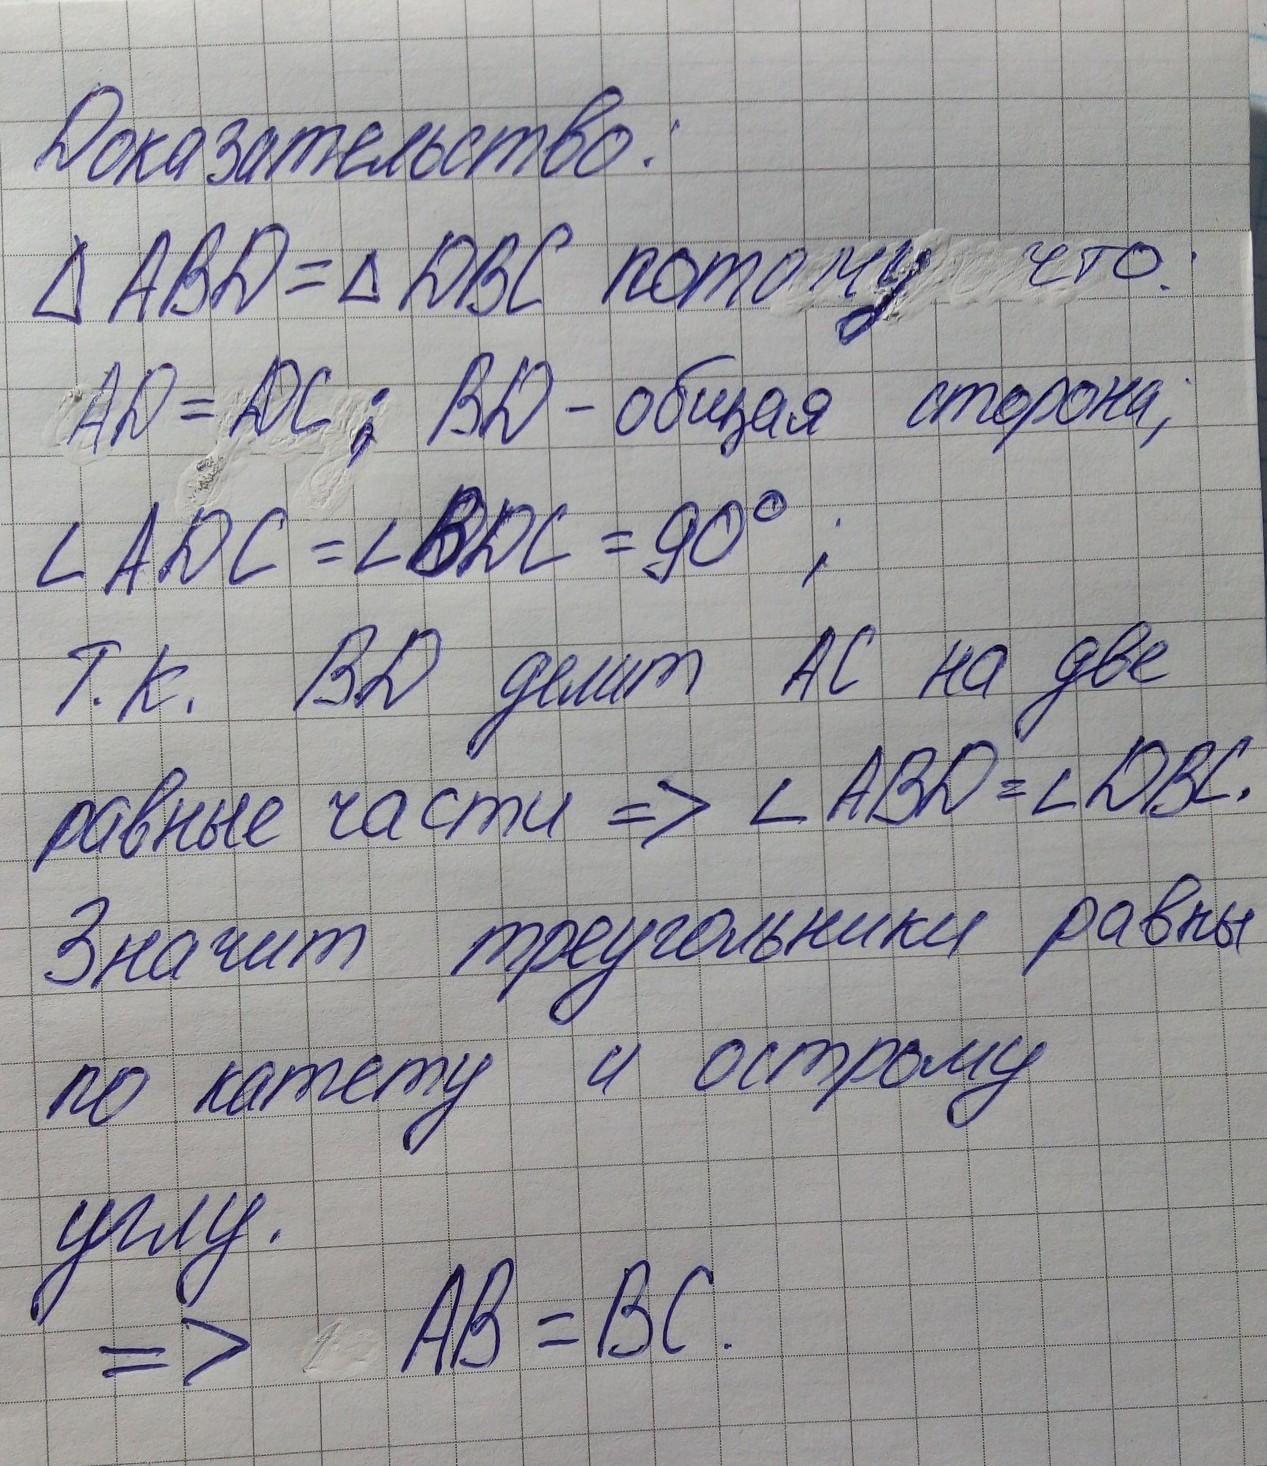 Доказательство:
Δ ABD = Δ DBC потому что:
AD = DC; BD - общая сторона;
∠ ADC = ∠ BDC = 90° ;
Т.к. BD делит AC на две
равные части => ∠ ABD = ∠ DBC.
Значит треугольники равны
по катету и острому
углу.
=> AB = BC.